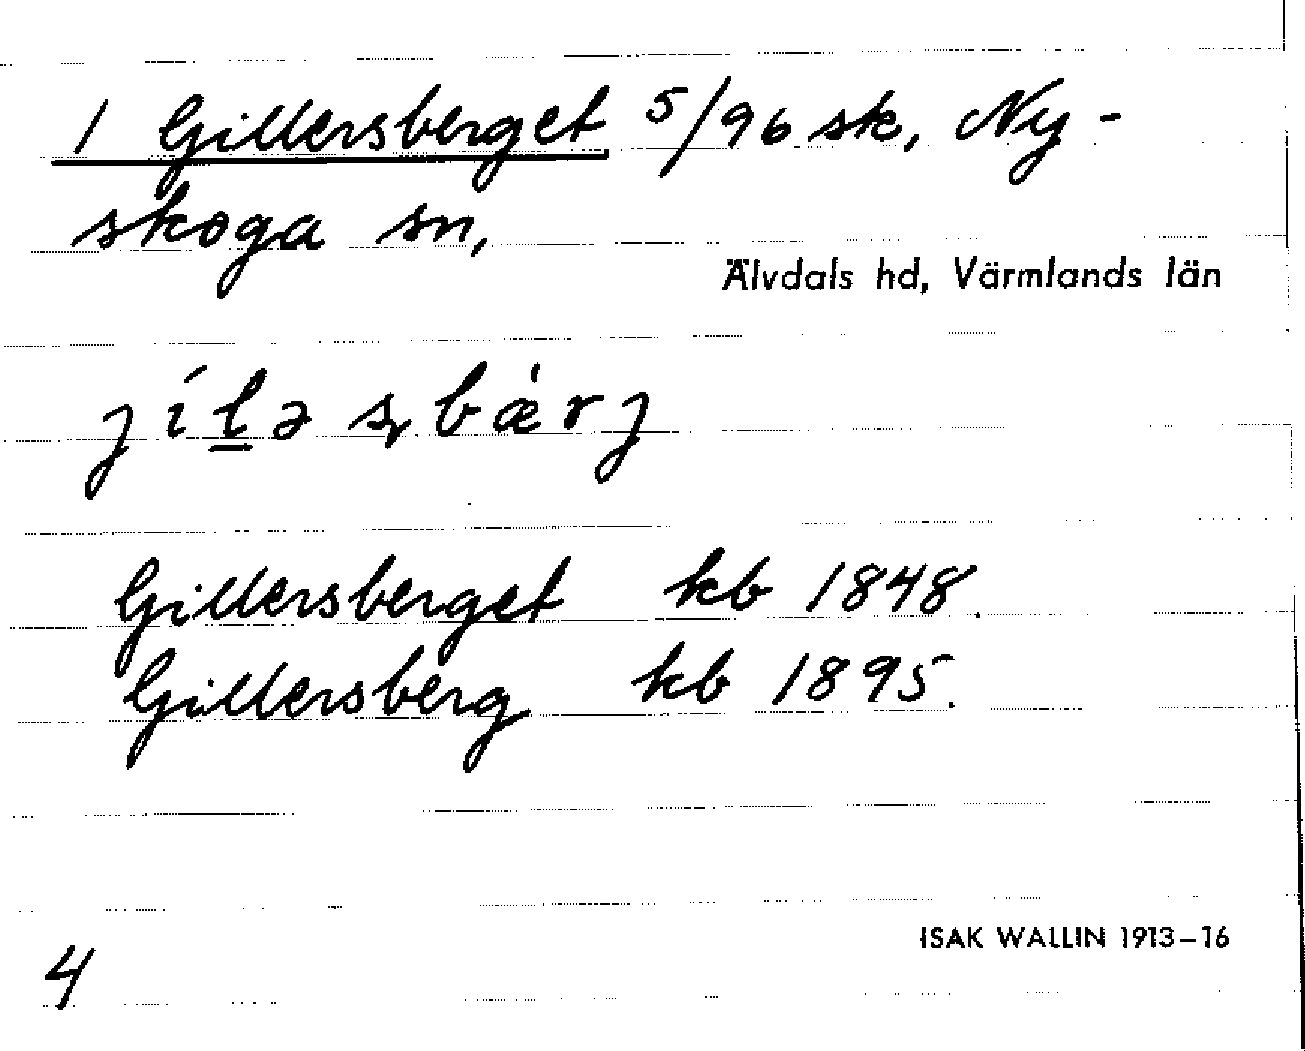 1 Gillersberget 5/96 sk, Ny-
skoga sn,
Älvdals hd, Värmlands län
jílə ʂbæ̀rj
Gillersberget kb 1848.
Gillersberg kb 1895.
ISAK WALLIN 1913-16
4